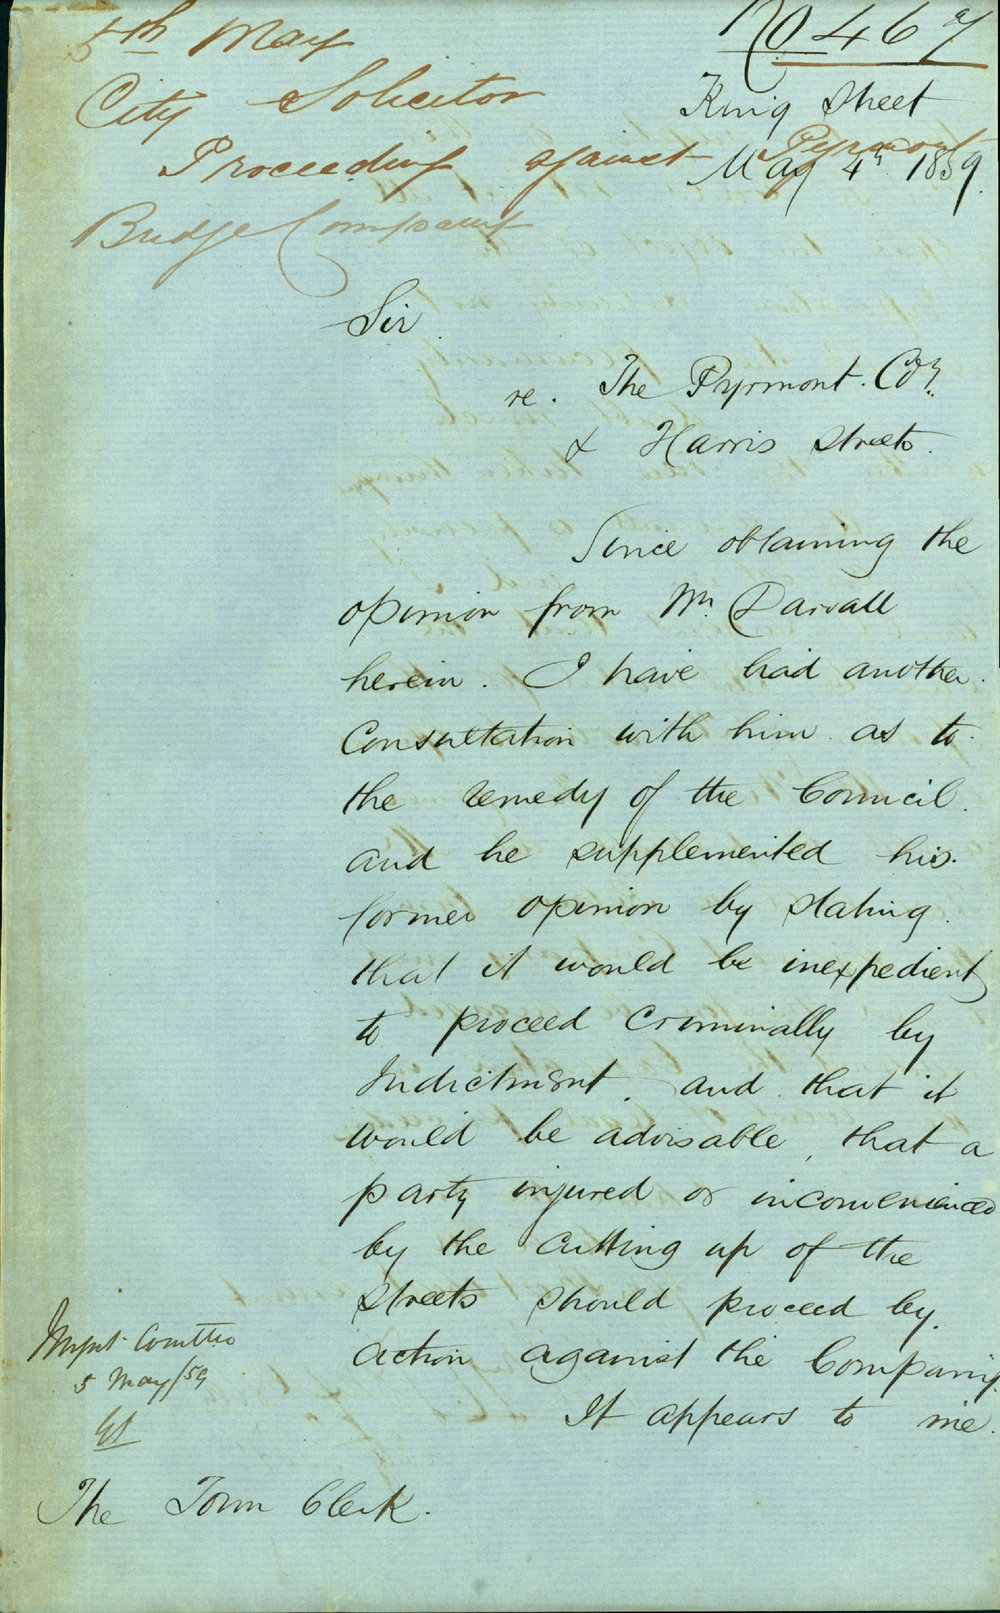 No 467
5th May
City Solicitor
Proceeding against Pyrmont
Bridge Company
King Street
May 4th 1859.
Sir
re. The Pyrmont. Coy.
& Harris Streets.
Since obtaining the
opinion from Mr. Darvall
herein. I have had another.
Consultation with him as to
the remedy of the Council.
and he supplemented his.
former opinion by stating.
that it would be inexpedient
to proceed Criminally by
Indictment. and that it
would be advisable, that a
party injured or inconvenienced
by the Cutting up of the
Streets should proceed by.
action against the Company.
It appears to me.
5 May/59
The Town Clerk.